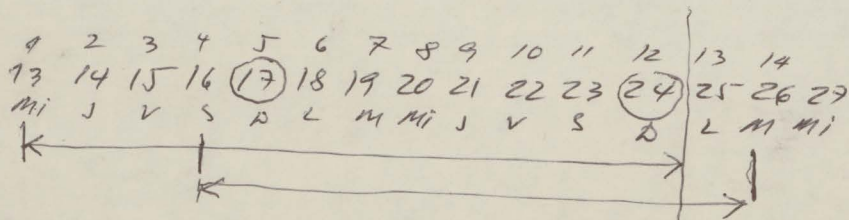 1 2 3 4 5 6 7 8 9 10 11 12 13 14
13 14 15 16 17 18 19 20 21 22 23 24 25 26 27
Mi J V S D L M Mi J V S D L M Mi